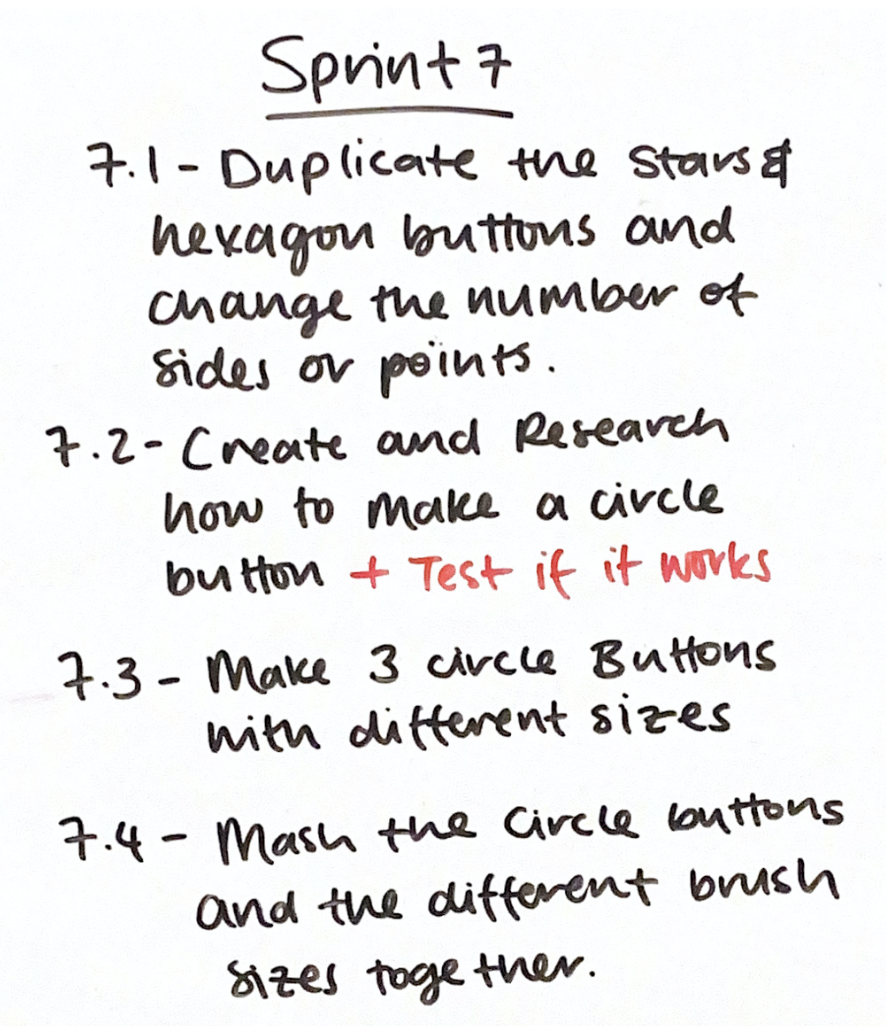 Sprint 7
7.1 - Duplicate the Stars &
hexagon buttons and
change the number of
sides or points.
7.2 - Create and Research
how to make a circle
button + Test if it works
7.3 - Make 3 circle Buttons
with different sizes
7.4 - Mash the Circle buttons
and the different brush
sizes together.